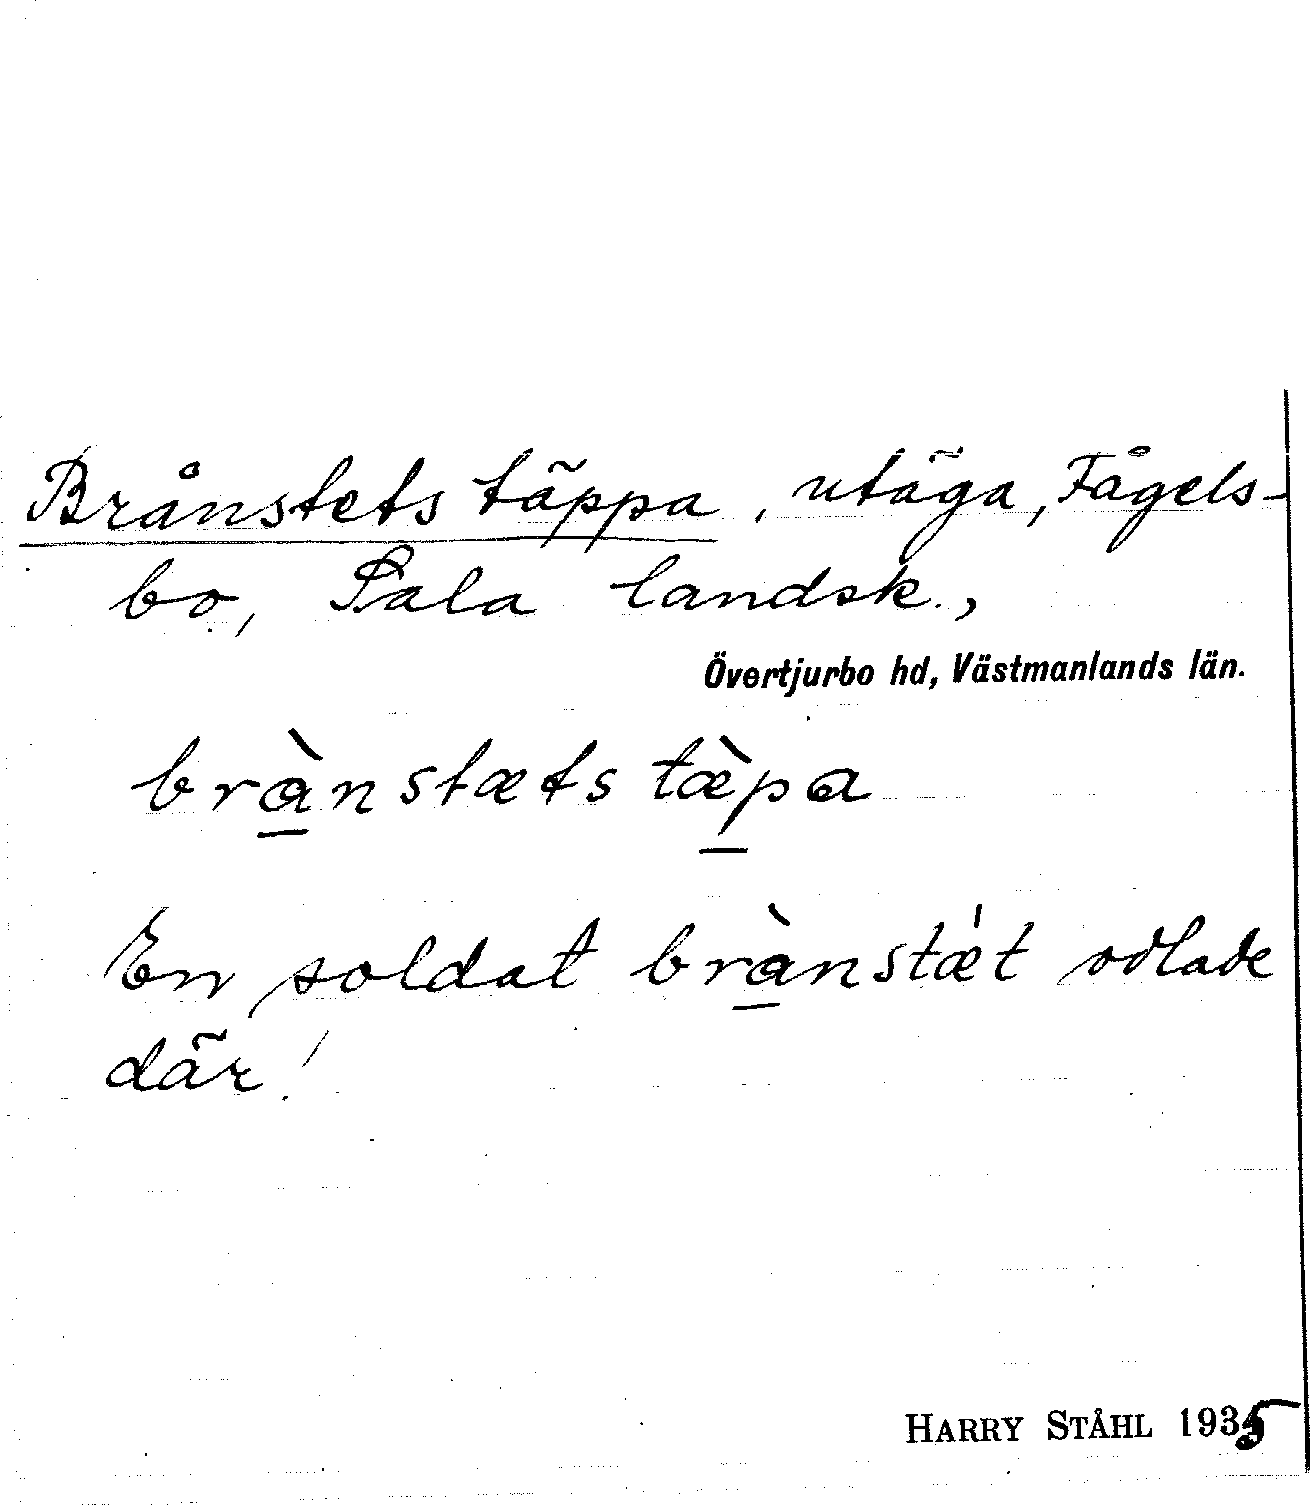 Brånstets täppa, utäga, Fågels-
bo, Sala landsk.,
Övertjurbo hd, Västmanlands län.
brà̱nstæts tæ̱̀pa
En soldat brà̱nstæ̍t odlade
där!
HARRY STÅHL 1935